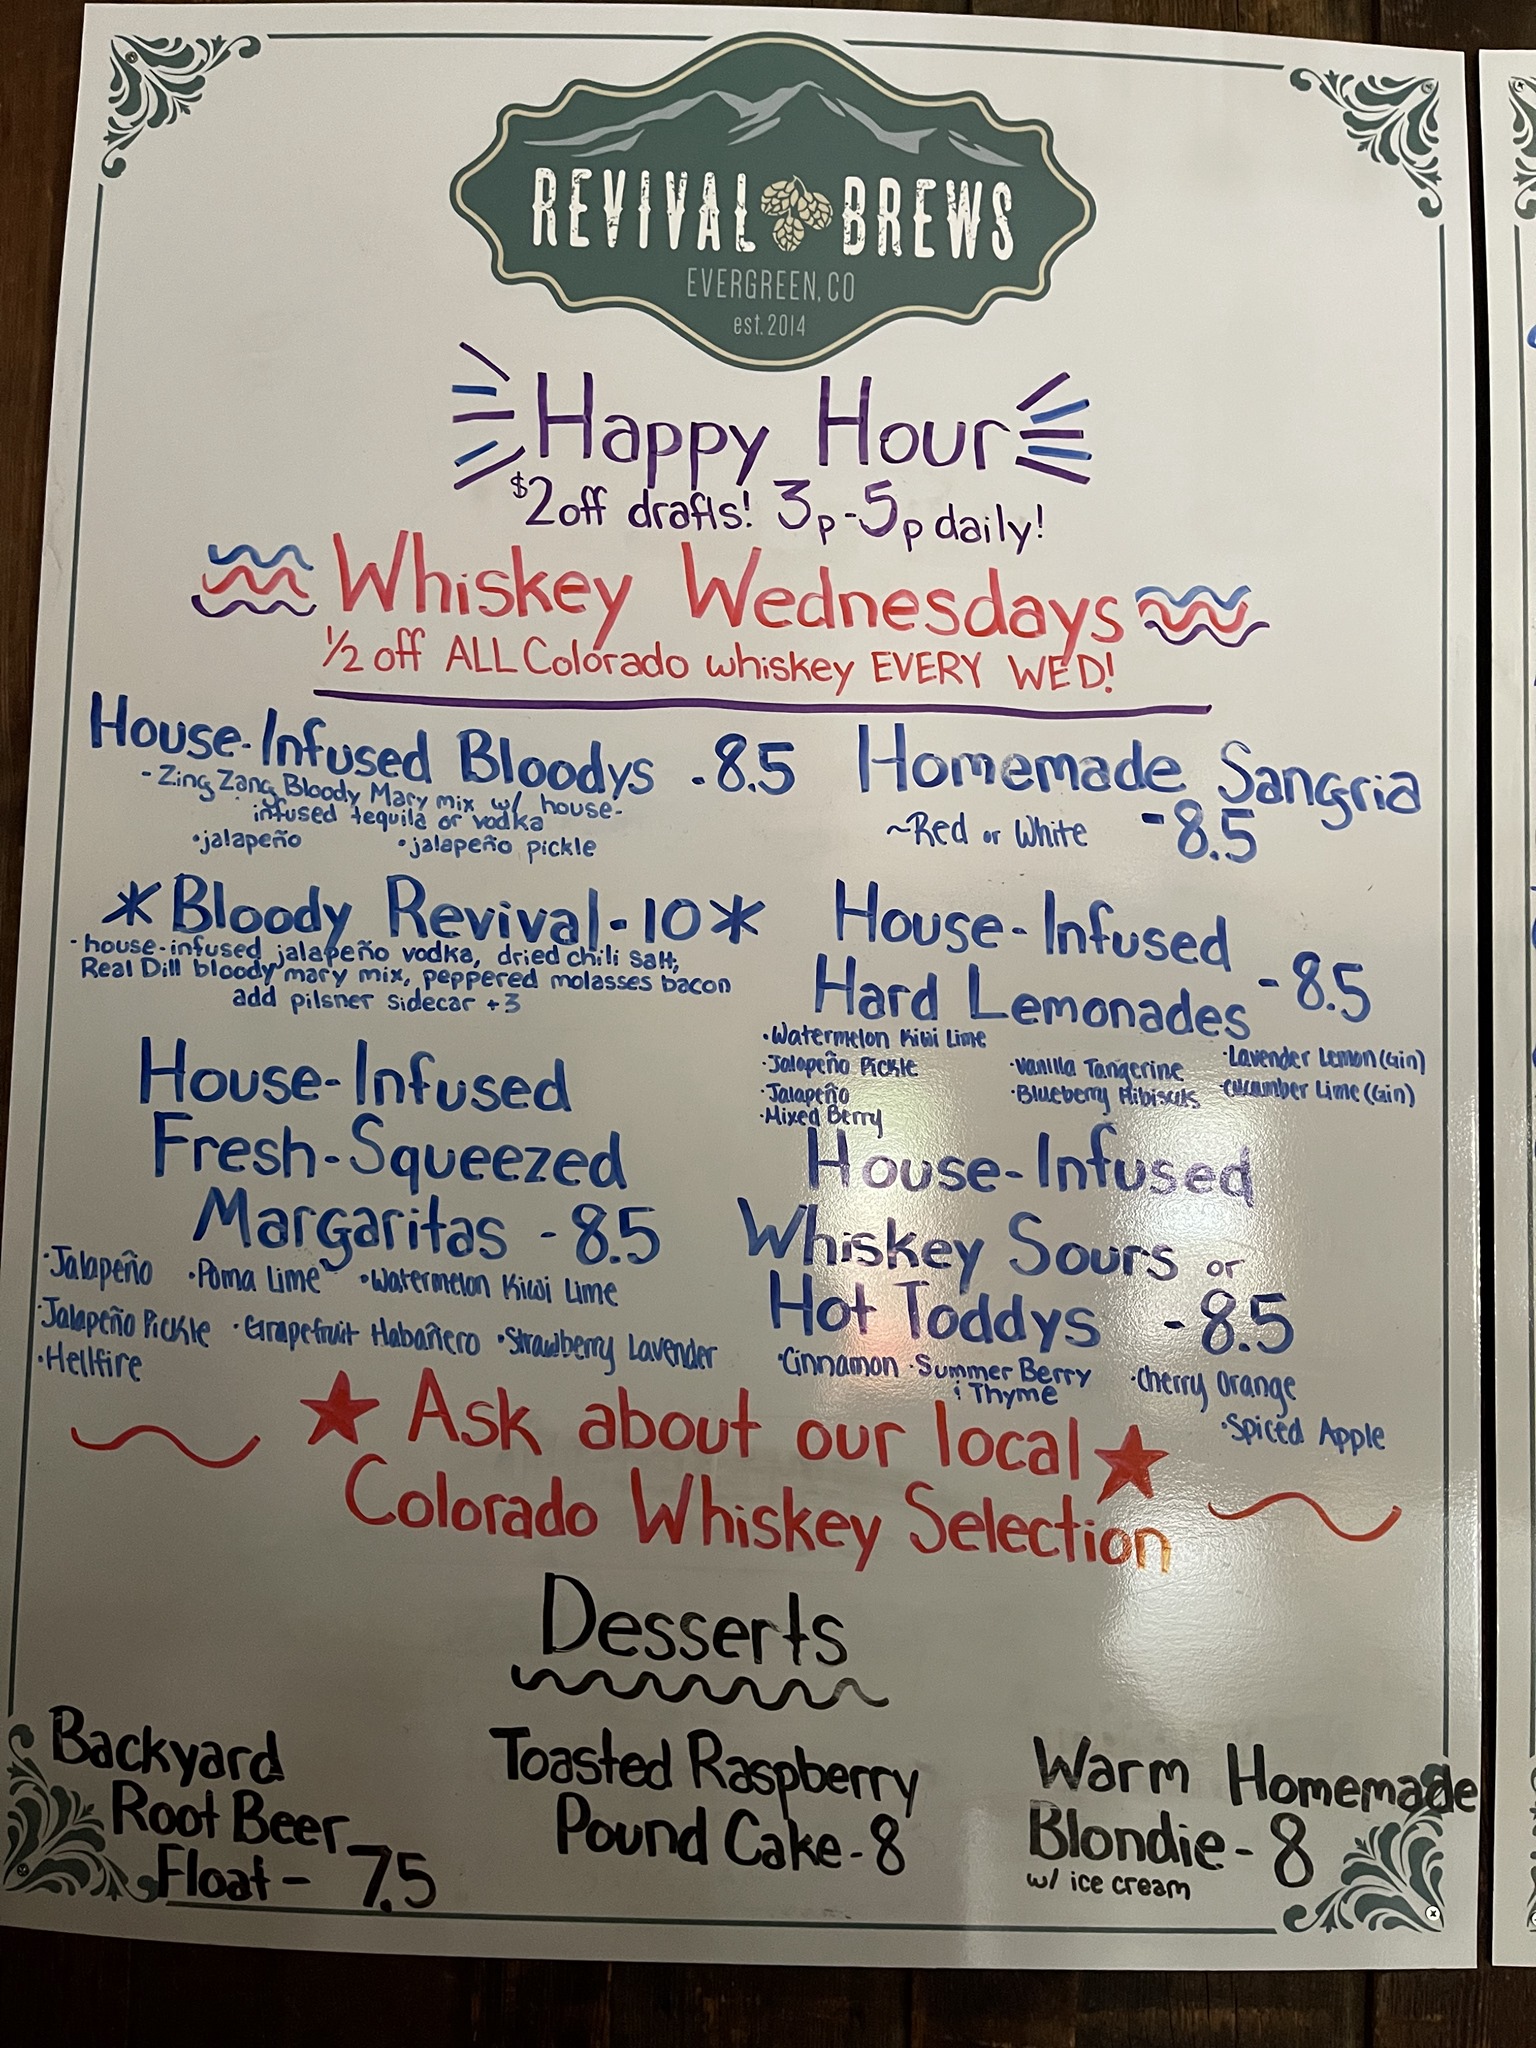 REVIVAL BREWS
EVERGREEN, CO
est. 2014
Happy Hour
$2 off drafts! 3p-5p daily!
Whiskey Wednesdays
1/2 off ALL Colorado whiskey EVERY WED!
House-Infused Bloodys - 8.5
- Zing Zang Bloody Mary mix w/ house-
infused tequila or vodka
• jalapeño • jalapeño pickle
*Bloody Revival - 10*
- house-infused jalapeño vodka, dried chili salt,
Real Dill bloody mary mix, peppered molasses bacon
add pilsner sidecar +3
House-Infused
Fresh-Squeezed
Margaritas - 8.5
• Jalapeño • Poma Lime • Watermelon Kiwi Lime
• Jalapeño Pickle • Grapefruit Habañero • Strawberry Lavender
• Hellfire
Homemade Sangria
~Red or White - 8.5
House-Infused
Hard Lemonades - 8.5
• Watermelon Kiwi Lime
• Jalapeño Pickle • Vanilla Tangerine • Lavender Lemon (Gin)
• Jalapeño • Blueberry Hibiscus • Cucumber Lime (Gin)
• Mixed Berry
House-Infused
Whiskey Sours or
Hot Toddys - 8.5
• Cinnamon • Summer Berry • Cherry Orange
& Thyme
• Spiced Apple
Ask about our local
Colorado Whiskey Selection
Desserts
Backyard
Root Beer
Float - 7.5
Toasted Raspberry
Pound Cake - 8
Warm Homemade
Blondie - 8
w/ ice cream